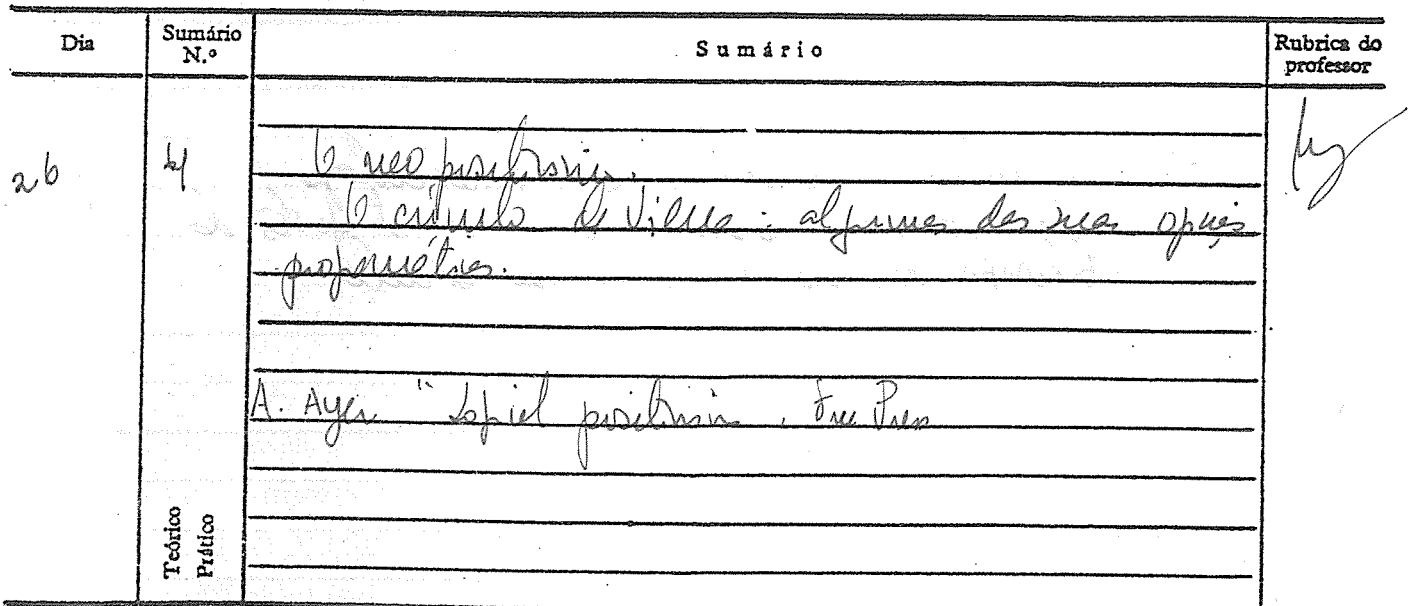 Dia
Sumário N.º
Sumário
Rubrica do professor
26
O neopositivismo.
O círculo de Viena : algumas das suas opções
programáticas.
A. Ayer " Logical positivism . Free Press
Teórico
Prático